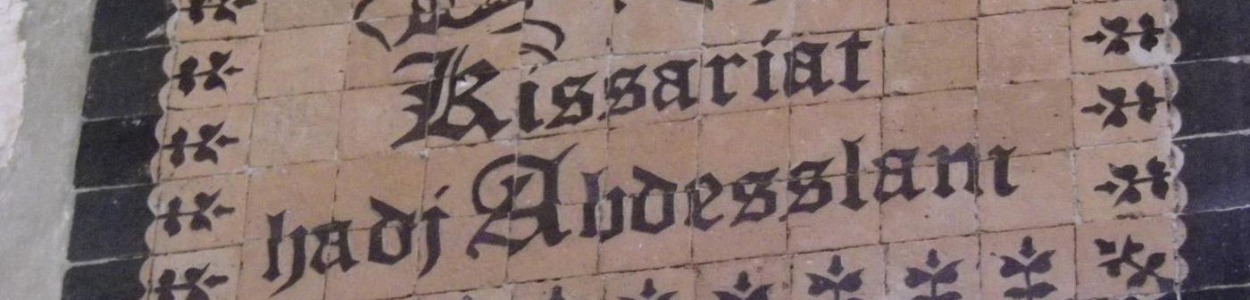 Kissariat
hadj Abdesslam